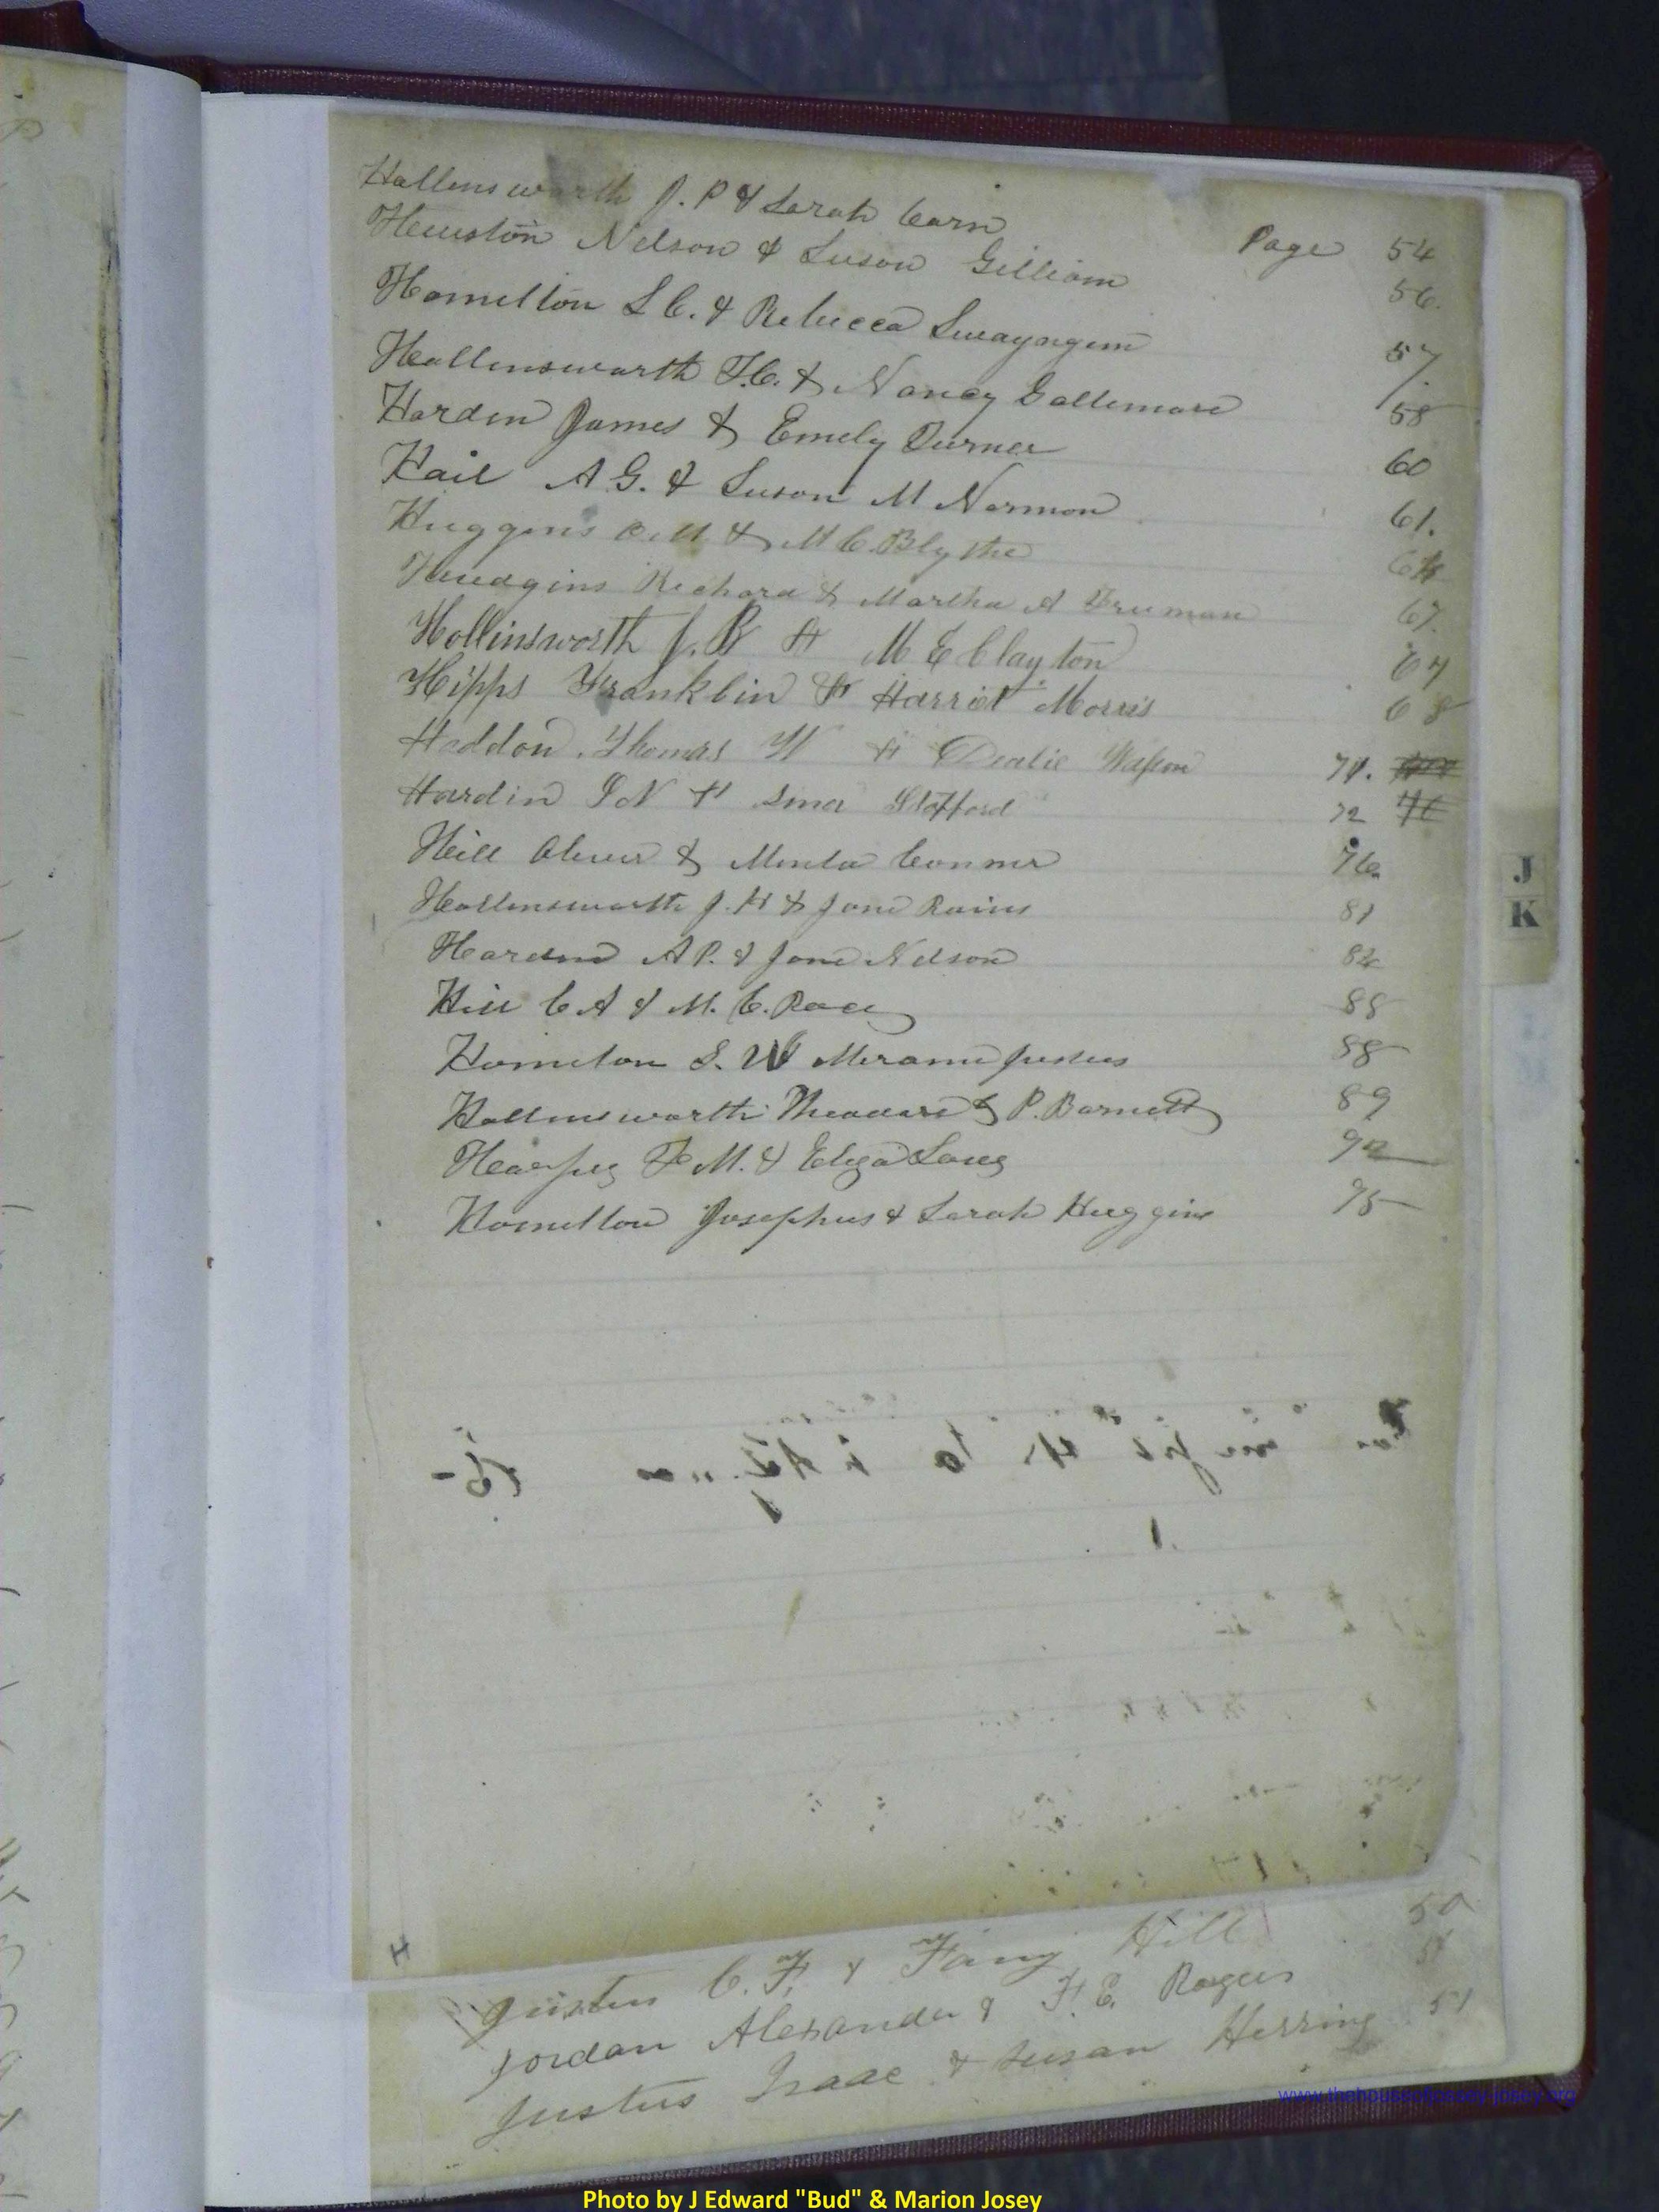 Hollensworth J. P & Sarah Carn Page 54
Heuston Nelson & Suson Gilliam 56.
Homelton S C. & Rebecca Swayngem 57
Hollensworth F. C. & Nancy Gallemore 58
Harden James & Emely Turner 60
Hail A G. & Suson M Normon 61.
Huggens & M C. Blythe
Hudgins Richard & Martha A Freeman 67.
Hollinsworth J. B & M E Clayton 64
Hipps Franklin & Harriet Morris 68
Haddon Thomas W & Dealie 71.
Hardin I N & Stafford 72
Hill Oliver & Menla Conner 76
Hollensworth J. H & Jane Rains 81
Harden A P. & Jane Nelson 82
Hill C A & M. C. Pace 88
Homelon S. W Merami Justus 88
Hollensworth Theadore & P. Barnett 89
F M. & Eliza Lang 92
Homelton Josephus & Sarah Huggins 95
J
K
H
Justus C. F. & Fany Hill 50
Jordan Alexander & F. E. Rogers 51
Justus Isaac & Susan Herring 51
www.thehouseofjossey-josey.org
Photo by J Edward "Bud" & Marion Josey